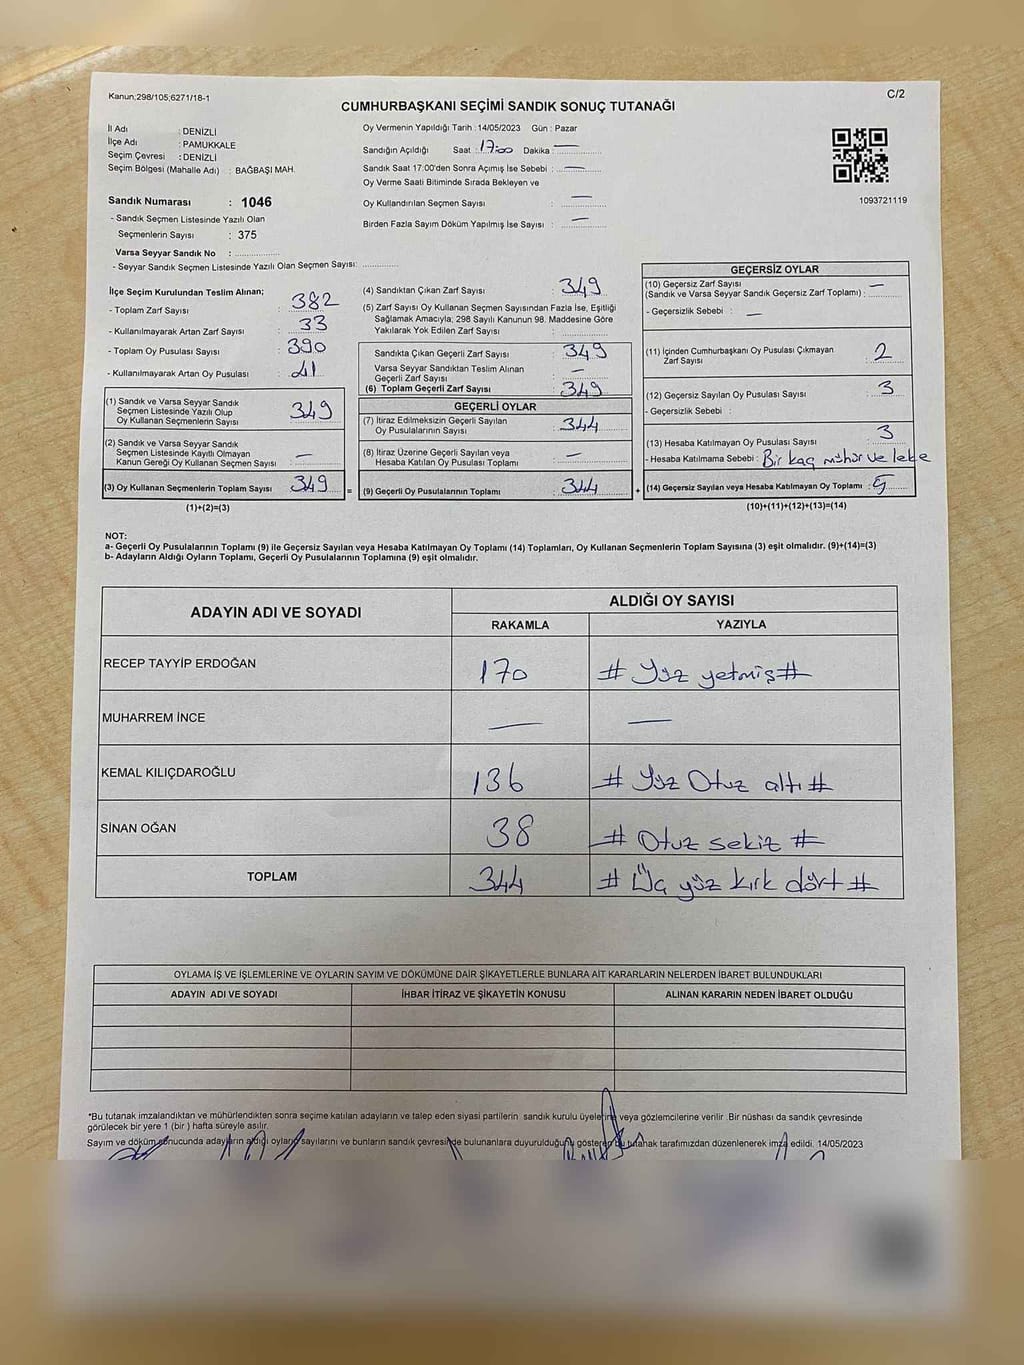 Kanun;298/105;6271/18-1
C/2
CUMHURBAŞKANI SEÇİMİ SANDIK SONUÇ TUTANAĞI
İl Adı : DENİZLİ
İlçe Adı : PAMUKKALE
Seçim Çevresi : DENİZLİ
Seçim Bölgesi (Mahalle Adı) : BAĞBAŞI MAH.
Sandık Numarası : 1046
- Sandık Seçmen Listesinde Yazılı Olan
Seçmenlerin Sayısı : 375
Varsa Seyyar Sandık No :
- Seyyar Sandık Seçmen Listesinde Yazılı Olan Seçmen Sayısı:
Oy Vermenin Yapıldığı Tarih : 14/05/2023 Gün : Pazar
Sandığın Açıldığı Saat : 17:00 Dakika : —
Sandık Saat 17:00'den Sonra Açımış İse Sebebi : —
Oy Verme Saati Bitiminde Sırada Bekleyen ve
Oy Kullandırılan Seçmen Sayısı : —
Birden Fazla Sayım Döküm Yapılmış İse Sayısı : —
1093721119
İlçe Seçim Kurulundan Teslim Alınan;
- Toplam Zarf Sayısı : 382
- Kullanılmayarak Artan Zarf Sayısı : 33
- Toplam Oy Pusulası Sayısı : 390
- Kullanılmayarak Artan Oy Pusulası : 41
(1) Sandık ve Varsa Seyyar Sandık
Seçmen Listesinde Yazılı Olup
Oy Kullanan Seçmenlerin Sayısı : 349
(2) Sandık ve Varsa Seyyar Sandık
Seçmen Listesinde Kayıtlı Olmayan
Kanun Gereği Oy Kullanan Seçmen Sayısı : —
(3) Oy Kullanan Seçmenlerin Toplam Sayısı : 349
(1)+(2)=(3)
(4) Sandıktan Çıkan Zarf Sayısı : 349
(5) Zarf Sayısı Oy Kullanan Seçmen Sayısından Fazla İse, Eşitliği
Sağlamak Amacıyla; 298 Sayılı Kanunun 98. Maddesine Göre
Yakılarak Yok Edilen Zarf Sayısı :
Sandıkta Çıkan Geçerli Zarf Sayısı : 349
Varsa Seyyar Sandıktan Teslim Alınan
Geçerli Zarf Sayısı : —
(6) Toplam Geçerli Zarf Sayısı : 349
GEÇERLİ OYLAR
(7) İtiraz Edilmeksizin Geçerli Sayılan
Oy Pusulalarının Sayısı : 344
(8) İtiraz Üzerine Geçerli Sayılan veya
Hesaba Katılan Oy Pusulası Toplamı : —
= (9) Geçerli Oy Pusulalarının Toplamı : 344 +
GEÇERSİZ OYLAR
(10) Geçersiz Zarf Sayısı : —
(Sandık ve Varsa Seyyar Sandık Geçersiz Zarf Toplamı) :
- Geçersizlik Sebebi : —
(11) İçinden Cumhurbaşkanı Oy Pusulası Çıkmayan
Zarf Sayısı : 2
(12) Geçersiz Sayılan Oy Pusulası Sayısı : 3
- Geçersizlik Sebebi :
(13) Hesaba Katılmayan Oy Pusulası Sayısı : 3
- Hesaba Katılmama Sebebi : Bir kaç mühür ve leke
(14) Geçersiz Sayılan veya Hesaba Katılmayan Oy Toplamı : 5
(10)+(11)+(12)+(13)=(14)
NOT:
a- Geçerli Oy Pusulalarının Toplamı (9) ile Geçersiz Sayılan veya Hesaba Katılmayan Oy Toplamı (14) Toplamları, Oy Kullanan Seçmenlerin Toplam Sayısına (3) eşit olmalıdır. (9)+(14)=(3)
b- Adayların Aldığı Oyların Toplamı, Geçerli Oy Pusulalarının Toplamına (9) eşit olmalıdır.
ADAYIN ADI VE SOYADI
ALDIĞI OY SAYISI
RAKAMLA YAZIYLA
RECEP TAYYİP ERDOĞAN 170 # Yüz yetmiş #
MUHARREM İNCE — —
KEMAL KILIÇDAROĞLU 136 # Yüz Otuz altı #
SİNAN OĞAN 38 # Otuz sekiz #
TOPLAM 344 # Üç yüz kırk dört #
OYLAMA İŞ VE İŞLEMLERİNE VE OYLARIN SAYIM VE DÖKÜMÜNE DAİR ŞİKAYETLERLE BUNLARA AİT KARARLARIN NELERDEN İBARET BULUNDUKLARI
ADAYIN ADI VE SOYADI İHBAR İTİRAZ VE ŞİKAYETİN KONUSU ALINAN KARARIN NEDEN İBARET OLDUĞU
*Bu tutanak imzalandıktan ve mühürlendikten sonra seçime katılan adayların ve talep eden siyasi partilerin sandık kurulu üyelerine veya gözlemcilerine verilir. Bir nüshası da sandık çevresinde
görülecek bir yere 1 (bir ) hafta süreyle asılır.
Sayım ve döküm sonucunda adayların aldığı oyların sayılarını ve bunların sandık çevresinde bulunanlara duyurulduğunu gösteren bu tutanak tarafımızdan düzenlenerek imza edildi. 14/05/2023